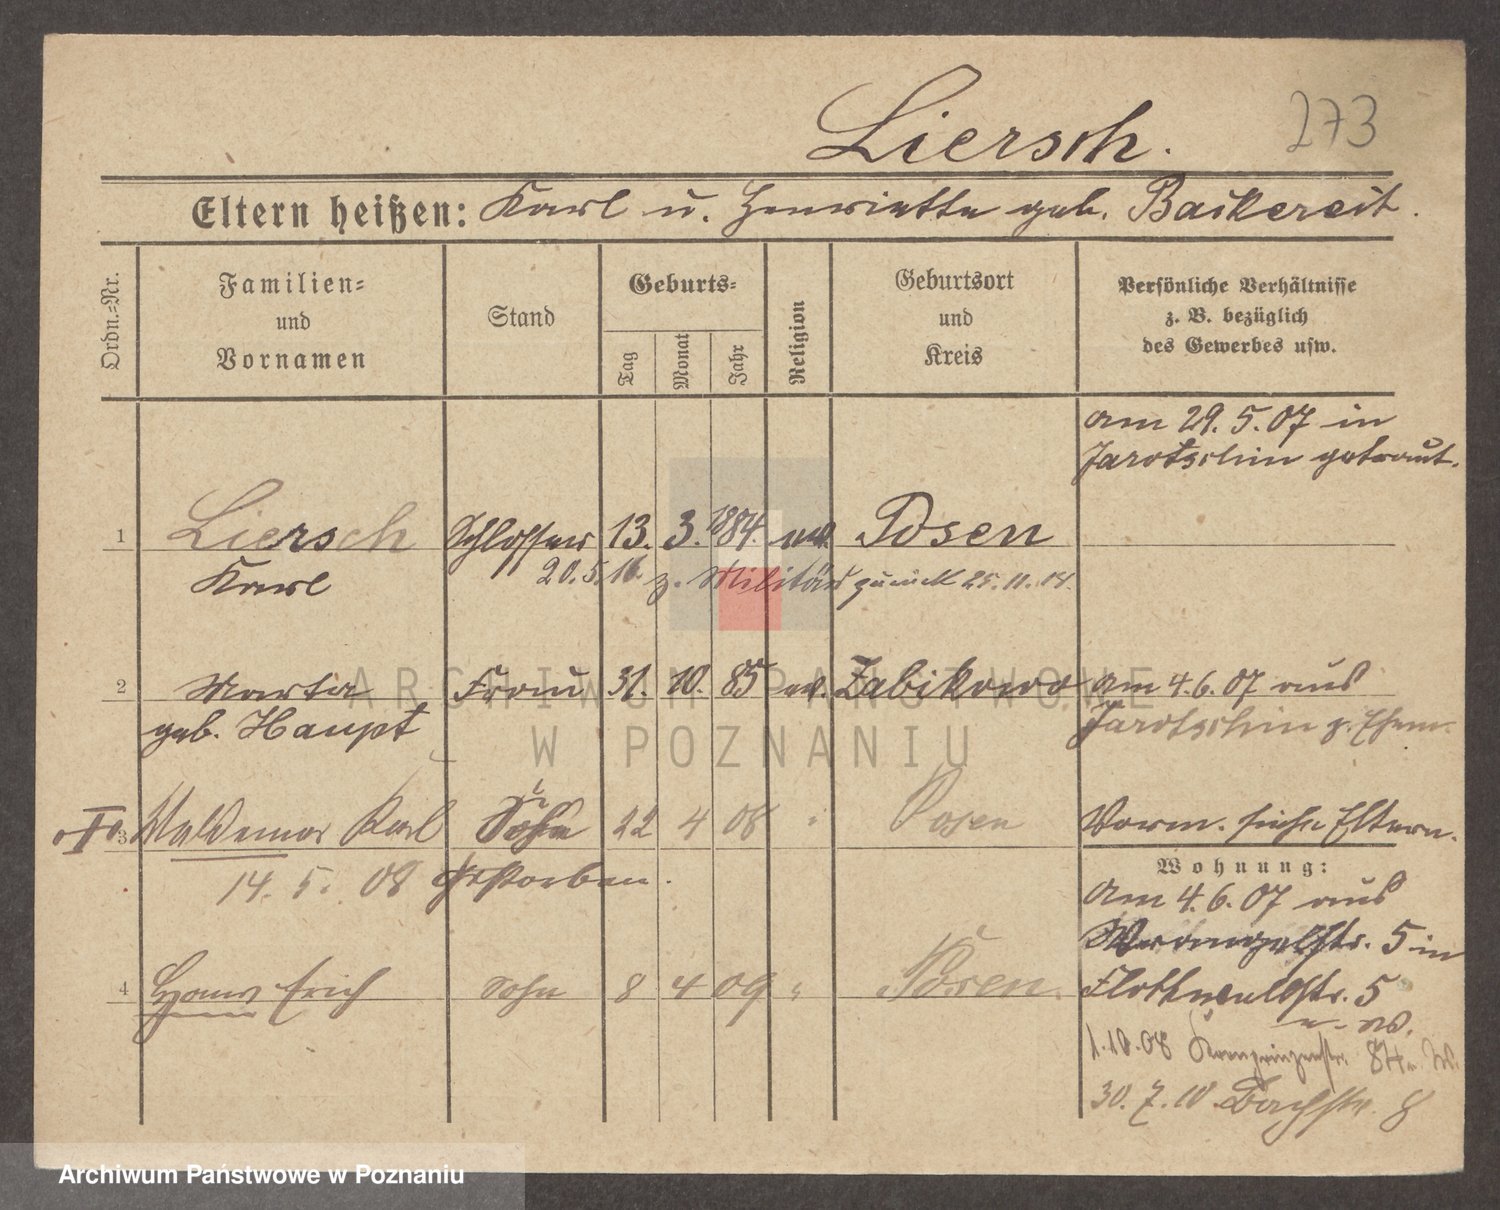 273
Liersch.
Eltern heißen: Karl u. Henriette geb. Baikereit.
Ordn.=Nr.
Familien=
und
Vornamen
Stand
Geburts=
Tag
Monat
Jahr
Religion
Geburtsort
und
Kreis
Persönliche Verhältnisse
z. B. bezüglich
des Gewerbes usw.
am 29.5.07 in
Jarotschin getraut.
1 Liersch Schlosser 13. 3. 1884. ev. Posen
Karl
20.5.16. z. Militär zurück 25.11.18.
2 Marta Frau 31. 10. 85 ev. Zabikowo am 4.6.07 aus
geb. Haupt Jarotschin z. Ehem.
3 Waldemar Karl Sohn 22 4 08 " Posen Vorm. siehe Eltern.
14. 5. 08 gestorben.
Wohnung:
am 4.6.07 aus
Wrangelstr. 5 in
4 Hans Erich Sohn 8 4 09 " Posen. Flottwellstr. 5
1.10.08 Kronprinzenstr. 84
30.7.10 Bachstr. 8
ARCHIWUM PAŃSTWOWE
W POZNANIU
Archiwum Państwowe w Poznaniu